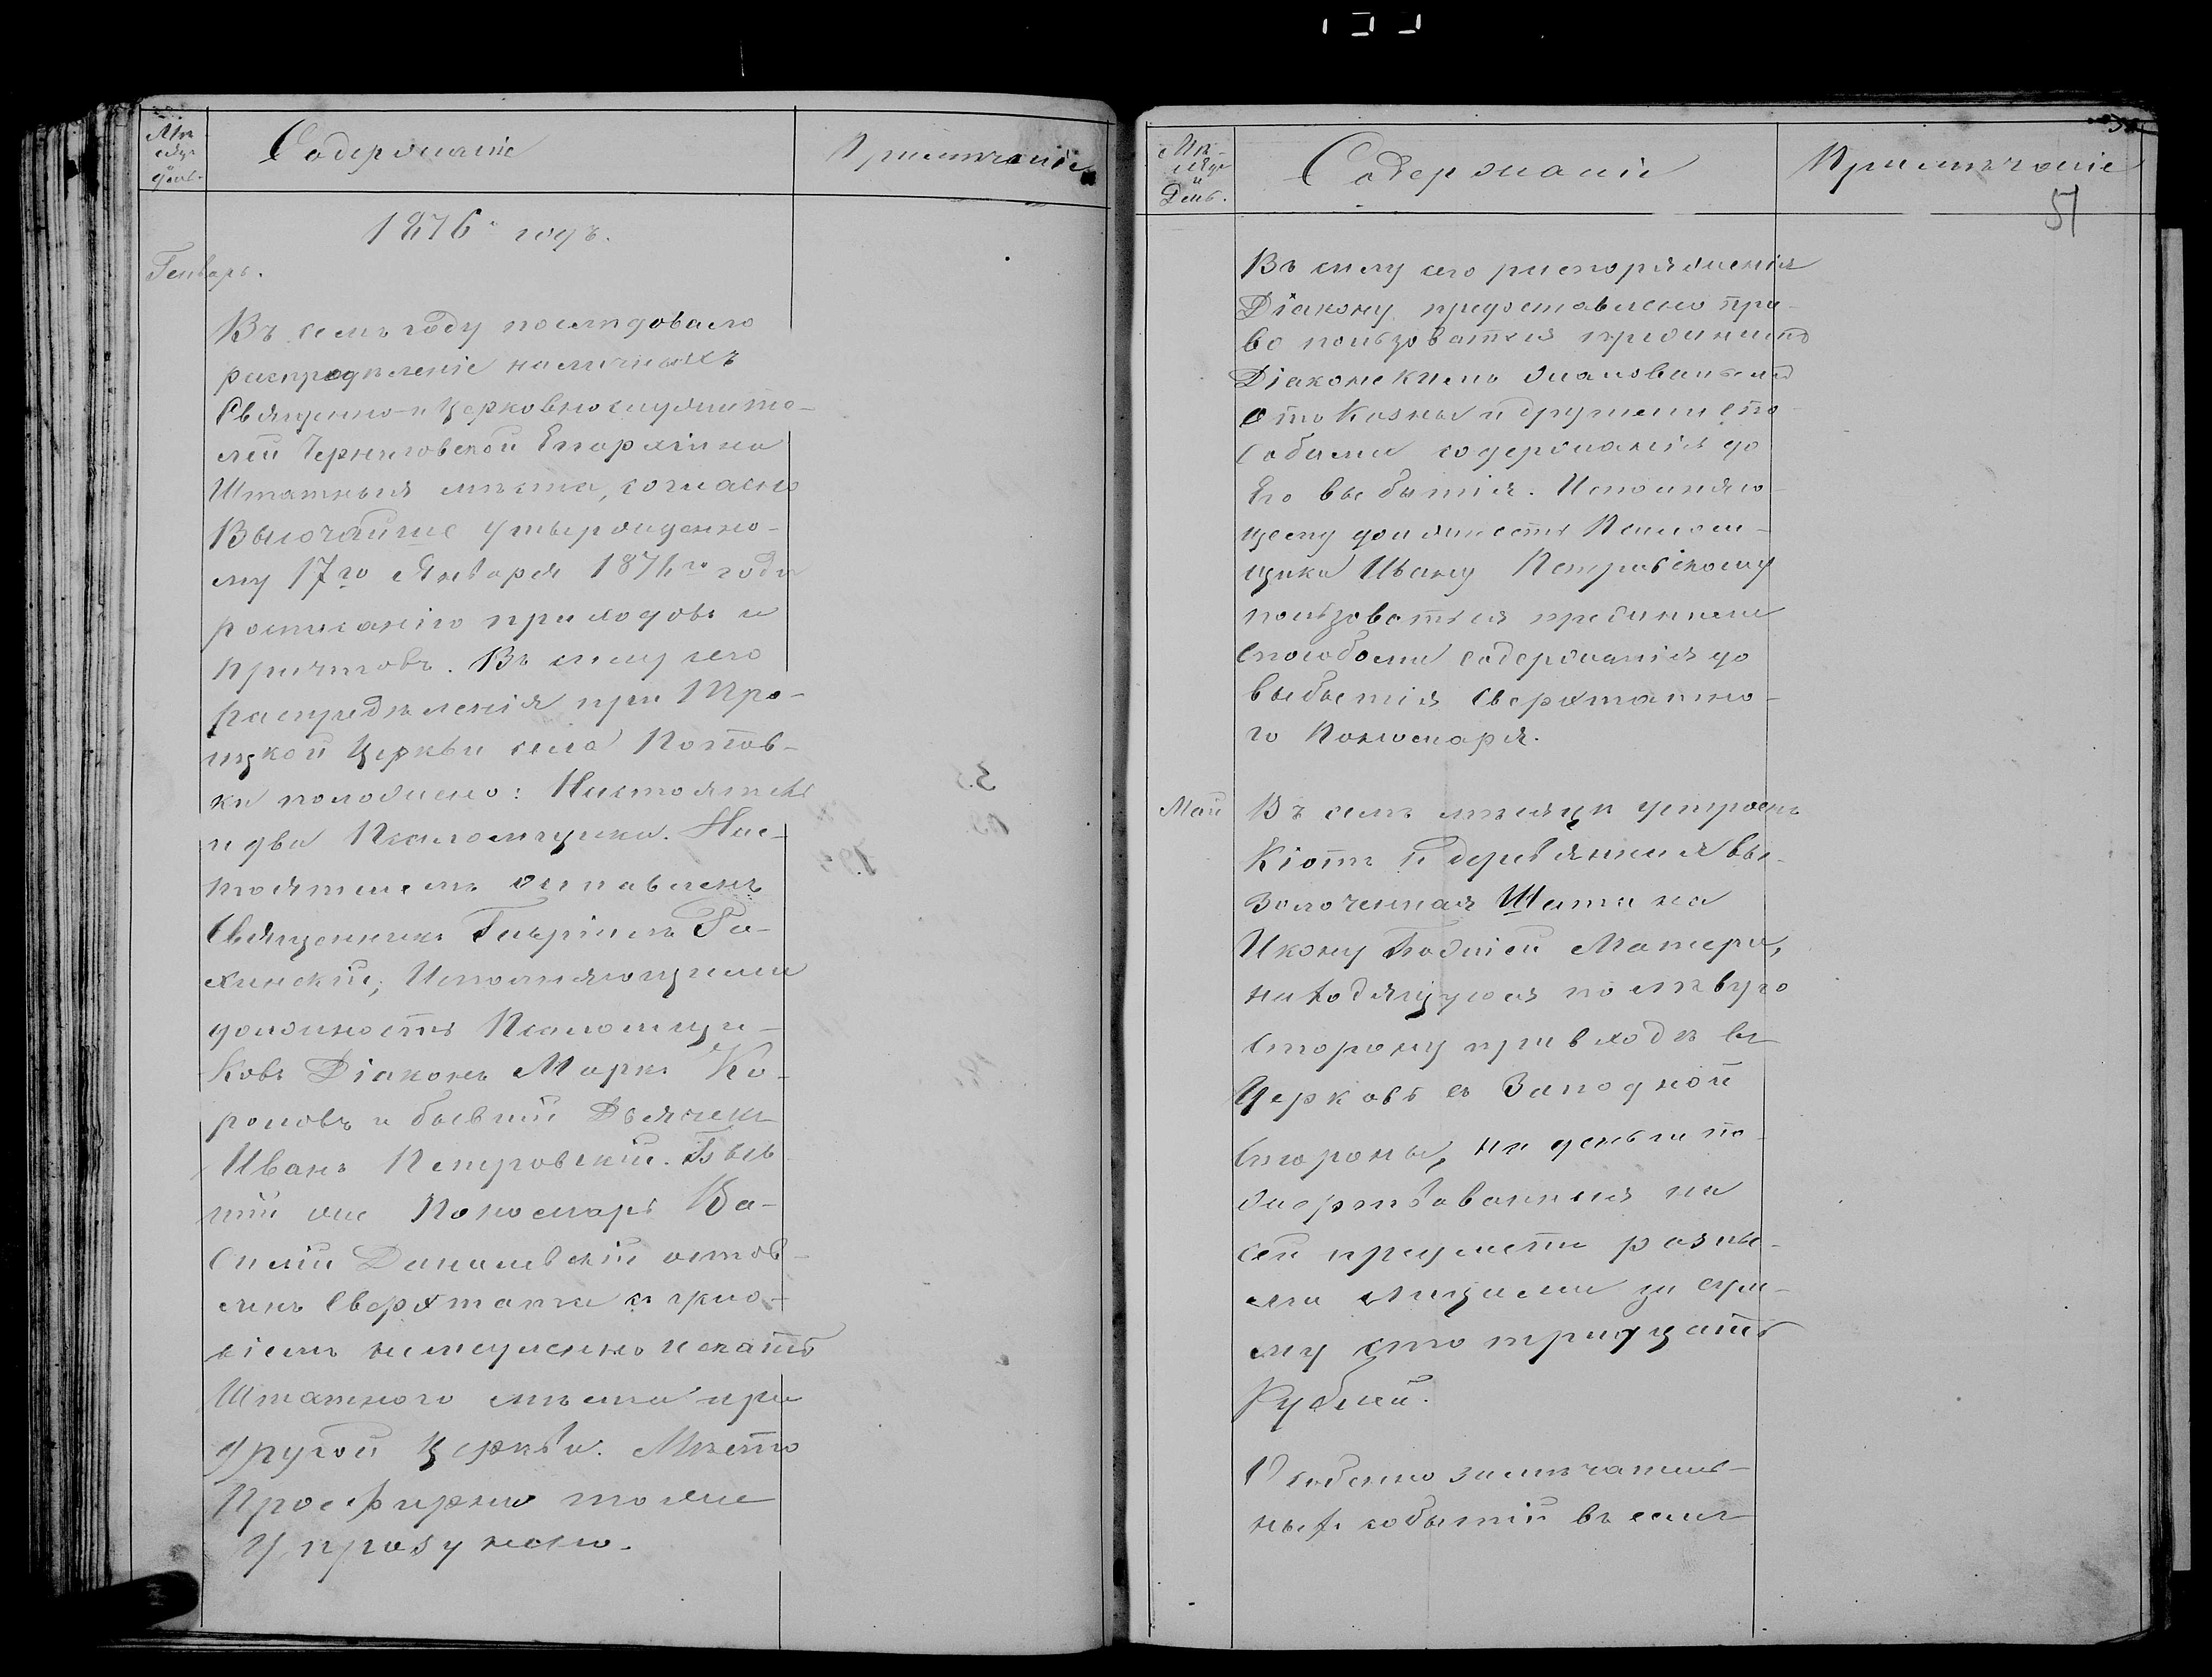 Мѣ-
сяцъ
день.
Содержаніе
Примѣчаніе
1876й годъ.
Генварь.
Въ семъ году послѣдовало
распредѣленіе наличныхъ
Священно-и Церковнослужите-
лей Черниговской Епархіи на
Штатныя мѣста, согласно
Высочайше утвержденно-
му 17го Января 1876го года
росписанію приходовъ и
причтовъ. Въ силу сего
распредѣленія при Тро-
ицкой Церкви села
ки положено: Настоятель
и два Псаломщика. Нас-
тоятелемъ оставленъ
Священникъ Гавріилъ
хинскій; Исполняющими
должность Псаломщи-
ковъ Діаконъ Маркъ Ко-
роповъ и бывшій Дьячекъ
Иванъ Петровскій. Быв-
шій же Пономарь Ва-
силій Данилевскій остав-
ленъ Сверхштата съ
віемъ немедленно искать
Штатного мѣста при
другой Церкви. Мѣсто
Просфирни тоже
Упразднено.
Мѣ-
сяцъ
и
День.
Содержаніе
Примѣчаніе
51
Въ силу сего распоряженія
Діакону предоставлено пра-
во пользоватся прежнимъ
Діаконскимъ жалованьемъ
отъ Казны и другими спо-
собами содержанія до
Его выбытія. Исполняю-
щему должность Псалом-
щика Ивану Петровскому
пользоватся прежними
Способами содержанія до
выбытія Сверхштатно-
го Пономаря.
Май
Въ семъ мѣсяцѣ устроенъ
Кіотъ и деревянная вы-
золоченная Шата на
Икону Божіей Матери,
находящуюся по лѣвую
Сторону при входѣ въ
Церковь съ Западной
Стороны, на деньги по-
жертвованныя на
сей предметъ разны-
ми лицами за сум-
му сто тридцать
Рублей.
Особенно замѣчатель-
ныхъ событій въ семъ